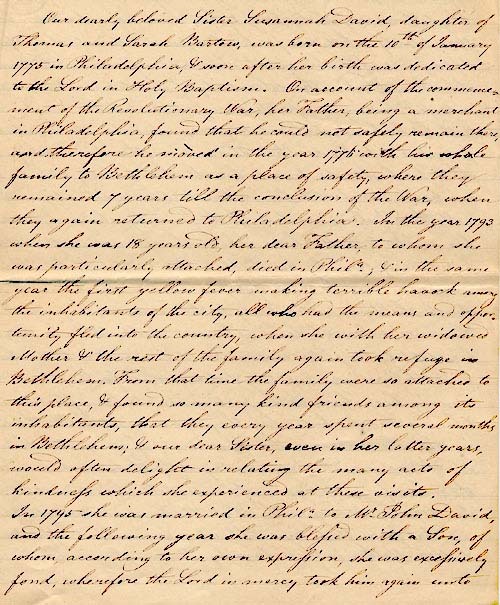 Our dearly beloved Sister Susannah David, daughter of
Thomas and Sarah Bartow, was born on the 10th of January
1775 in Philadelphia, & soon after her birth was dedicated
to the Lord in Holy Baptism. On account of the commence-
ment of the Revolutionary War, her Father, being a merchant
in Philadelphia, found that he could not safely remain there,
and therefore he moved in the year 1776 with his whole
family to Bethlehem as a place of safety, where they
remained 7 years till the conclusion of the War, when
they again returned to Philadelphia. In the year 1793
when she was 18 years old, her dear Father, to whom she
was particularly attached, died in Phila.; & in the same
year the first yellow fever making terrible havock among
the inhabitants of the city, all who had the means and oppor-
tunity fled into the country, when she with her widowed
Mother & the rest of the family again took refuge in
Bethlehem. From that time the family were so attached to
this place, & found so many kind friends among its
inhabitants, that they every year spent several months
in Bethlehem, & our dear Sister, even in her latter years,
would often delight in relating the many acts of
kindness which she experienced at these visits.
In 1795 she was married in Phila. to Mr. John David,
and the following year she was blessed with a Son, of
whom, according to her own expression, she was excessively
fond, wherefore the Lord in mercy took him again unto